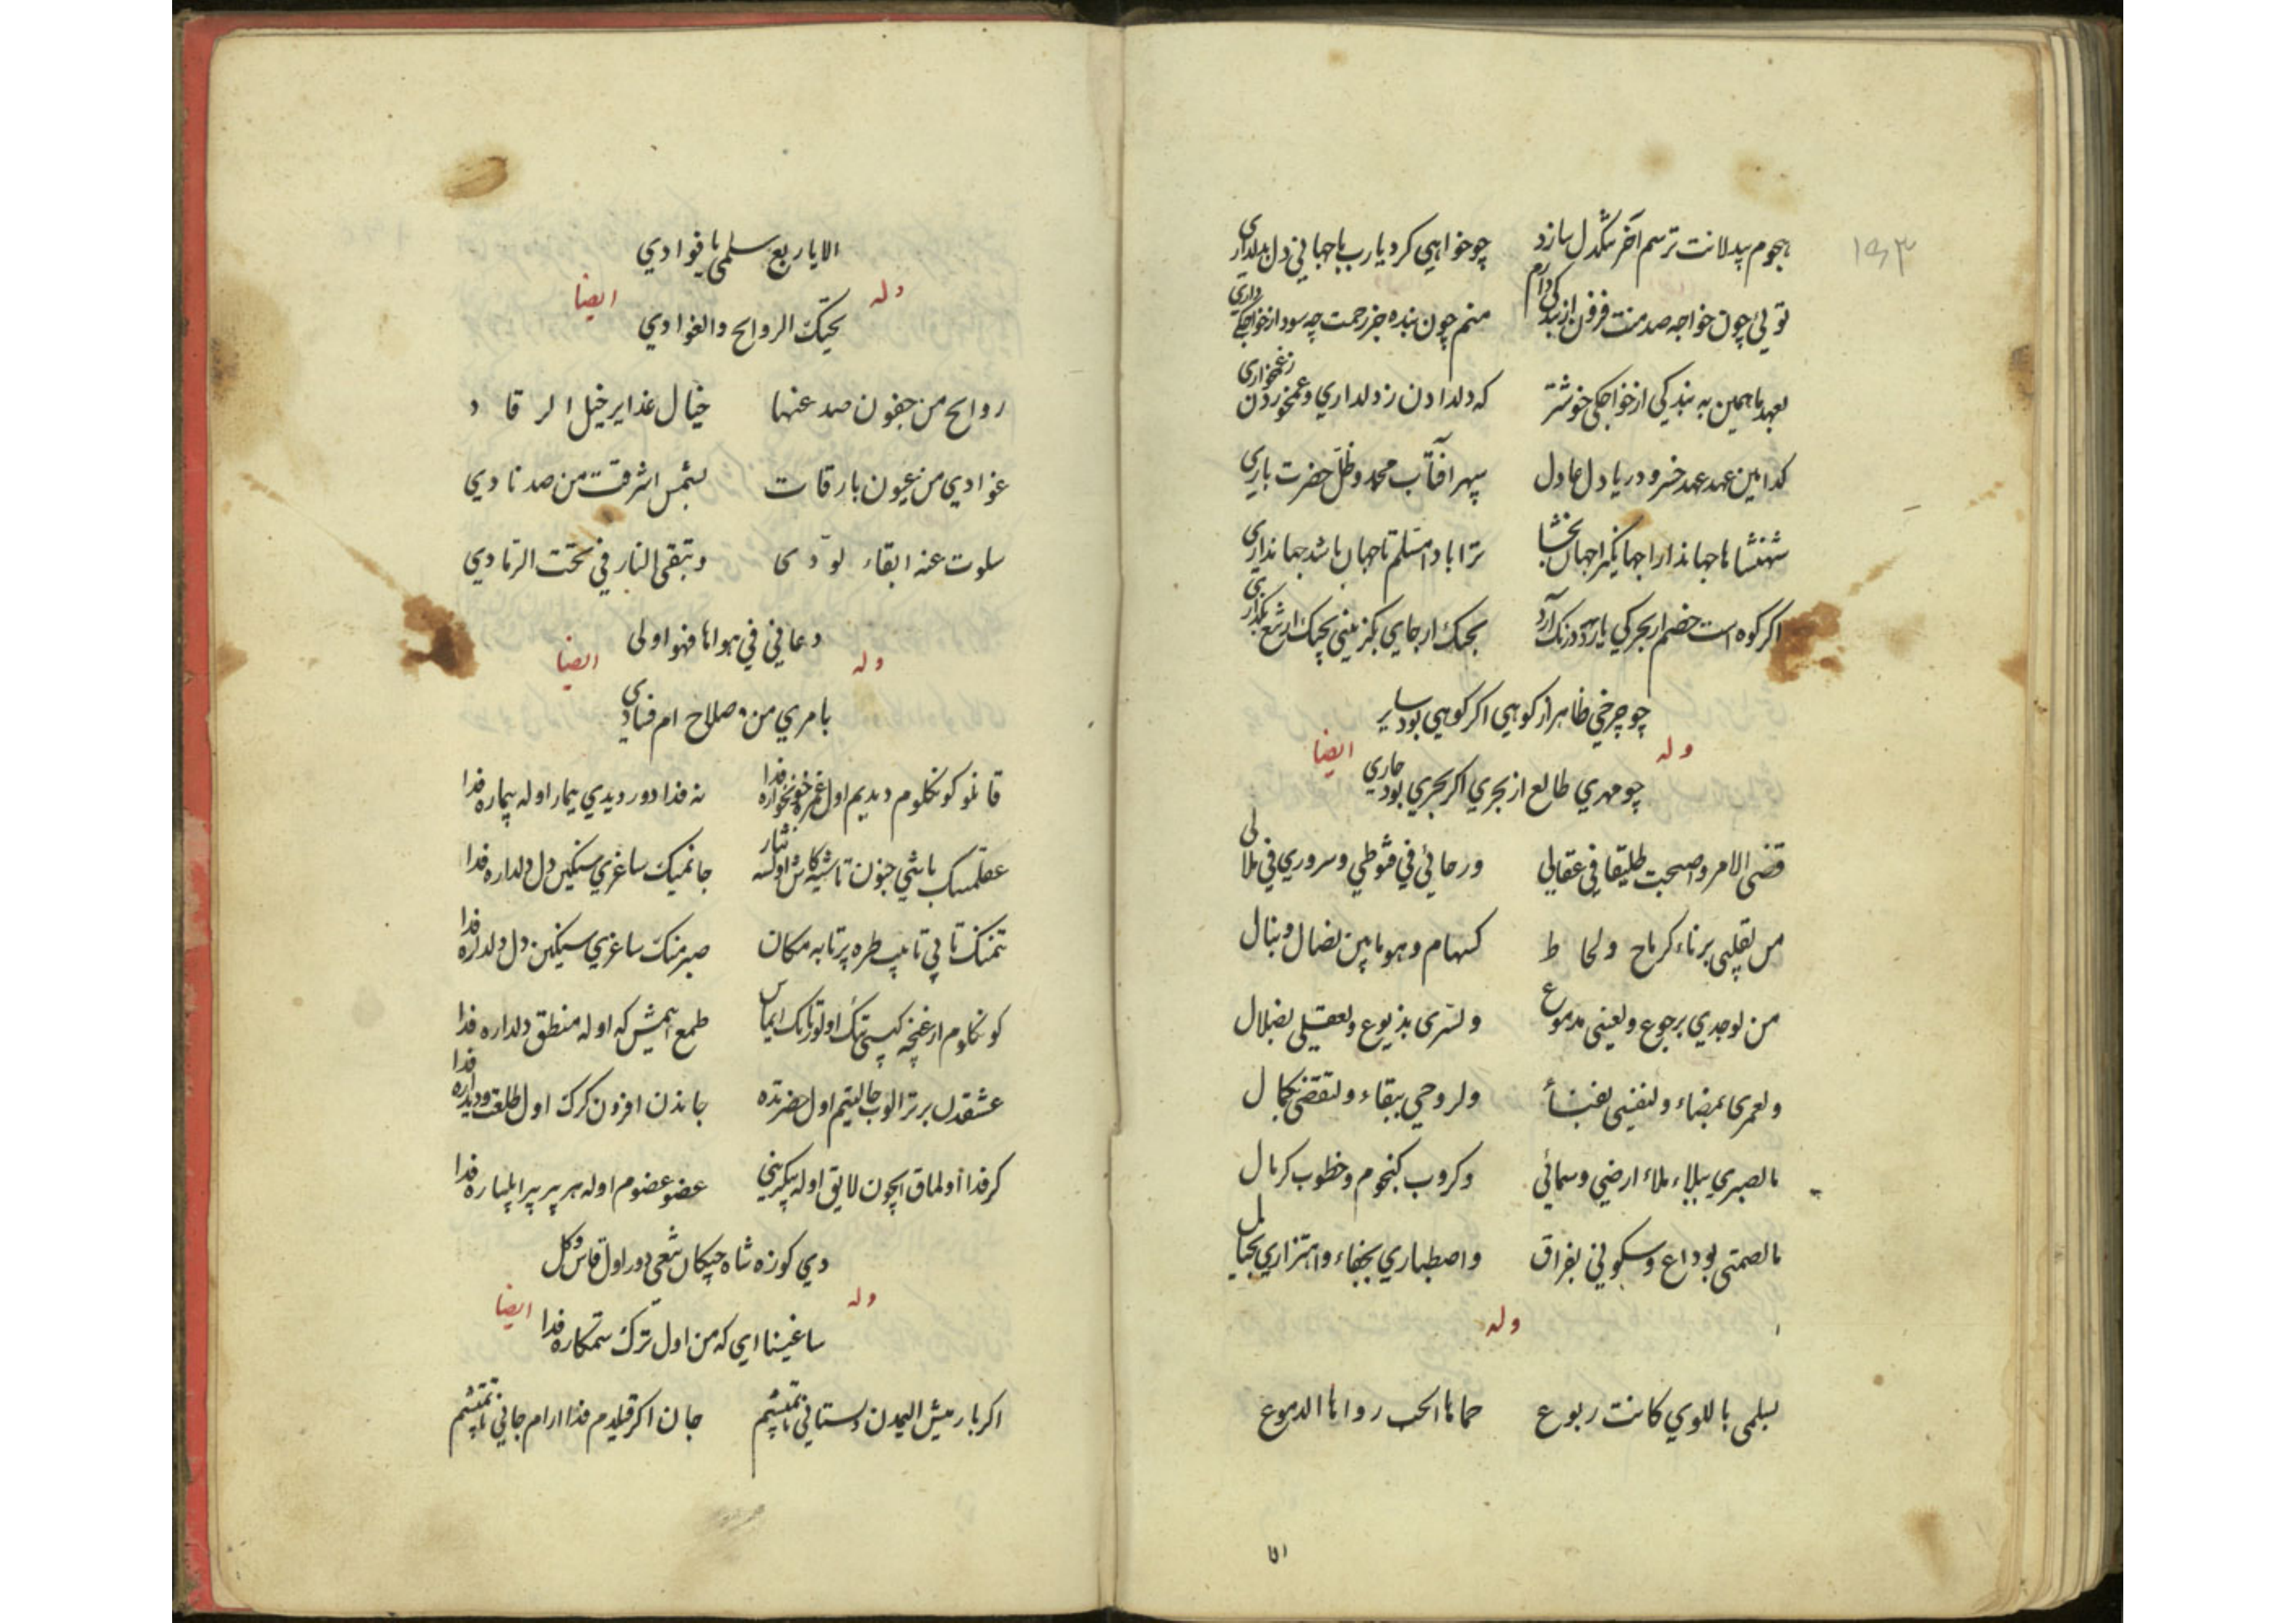 ۱۹۳
هجوم بیدلانت ترسم آخر سنگدل سازد چو خواهی کرد یارب با جهانی دل بدلداری
توئی چون خواجه صد منت فزون از بندگی دارم منم چون بنده جز رحمت چه سود از خواجگی داری
بعهد ما همین به بندگی از خواجگی خوشتر که دلدادن ز دلداری و غمخوردن ز غمخواری
کدامین عهد عهد خسرو دریادل عادل سپهر افتاب محمد و ظل حضرت باری
شهنشاها جهاندارا جهانگیرا جهان بخشا ترا بادا مسلم تا جهان باشد جهانداری
اکر کوه است خصم ار بحر کی یارد درنک آرد بجنک ار جای بکزینی بچنک ار تیغ بکذاری
چو چرخی ظاهر از کوهی اکر کوهی بود سایر
وله ایضا
چو مهری طالع از بحری اکر بحری بود جاری
قضی الامر و اصبحت طلیقا فی عقالی ورجائی فی قنوطی و سروری فی ملالی
من لقلبی برناء کرماح ولحاظ کسهام وهو ما بین نضال ونبال
من لوجدی برجوع ولعینی بدموع ولسری بذیوع ولعقلی بضلال
ولعمری بمضاء ولنفسی بفناء ولروحی ببقاء ولنقضی بکمال
ما لصبری ببلاء ملاء ارضی وسمائی وکروب کنجوم وخطوب کرمال
ما لصمتی بوداع وسکونی بفراق واصطباری بجفاء واهتزازی بخیال
وله
لسلمی باللوی کانت ربوع حماها الحب رواها الدموع
الا یا ربع سلمی یا فوادی
وله ایضا
تحیتک الروایح والغوادی
روایح من جفون صد عنها خیال غدایر خیل الرقاد
غوادی من عیون بارقات بشمس اشرقت من صد نادی
سلوت عنه ابقاء لودی وتبقی النار فی تحت الرمادی
دعانی فی هواها فهو اولی
وله ایضا
بامری من صلاح ام فسادی
قانلو کونکلوم دیدیم اول غمزه خونخواره فدا نه فدا دور دیدی بیمار اوله بیماره فدا
عقلمنک باشی جنون تاشیه کاش اولسه نثار جانمینک ساغری سنکین دل دلداره فدا
تنمنک تابی تاپیب طره پرتابه مکان صبرمنک ساغری سنکین دل دلداره فدا
کونکلوم ار غنچه کیبی تنک اولورتانک ایماس طمع ایتمیش که اوله منطق دلداره فدا
عشقدن برتر الوب حالیتیم اول حضرتده جاندن افزون کرک اول طلعت و دیداره فدا
کر فدا اولماق ایچون لایق اوله پیکرینی عضو عضوم اوله هر بیر بیر ایلیاره فدا
دی کوزه شاه چیکان تیغی دور اول قاش و کل
وله ایضا
ساغینما ای که من اول ترک ستمکاره فدا
اکر بارمیش الیمدن دلستانی تاپمیشم جان اکر قیلدیم فدا ارام جانی تاپمیشم